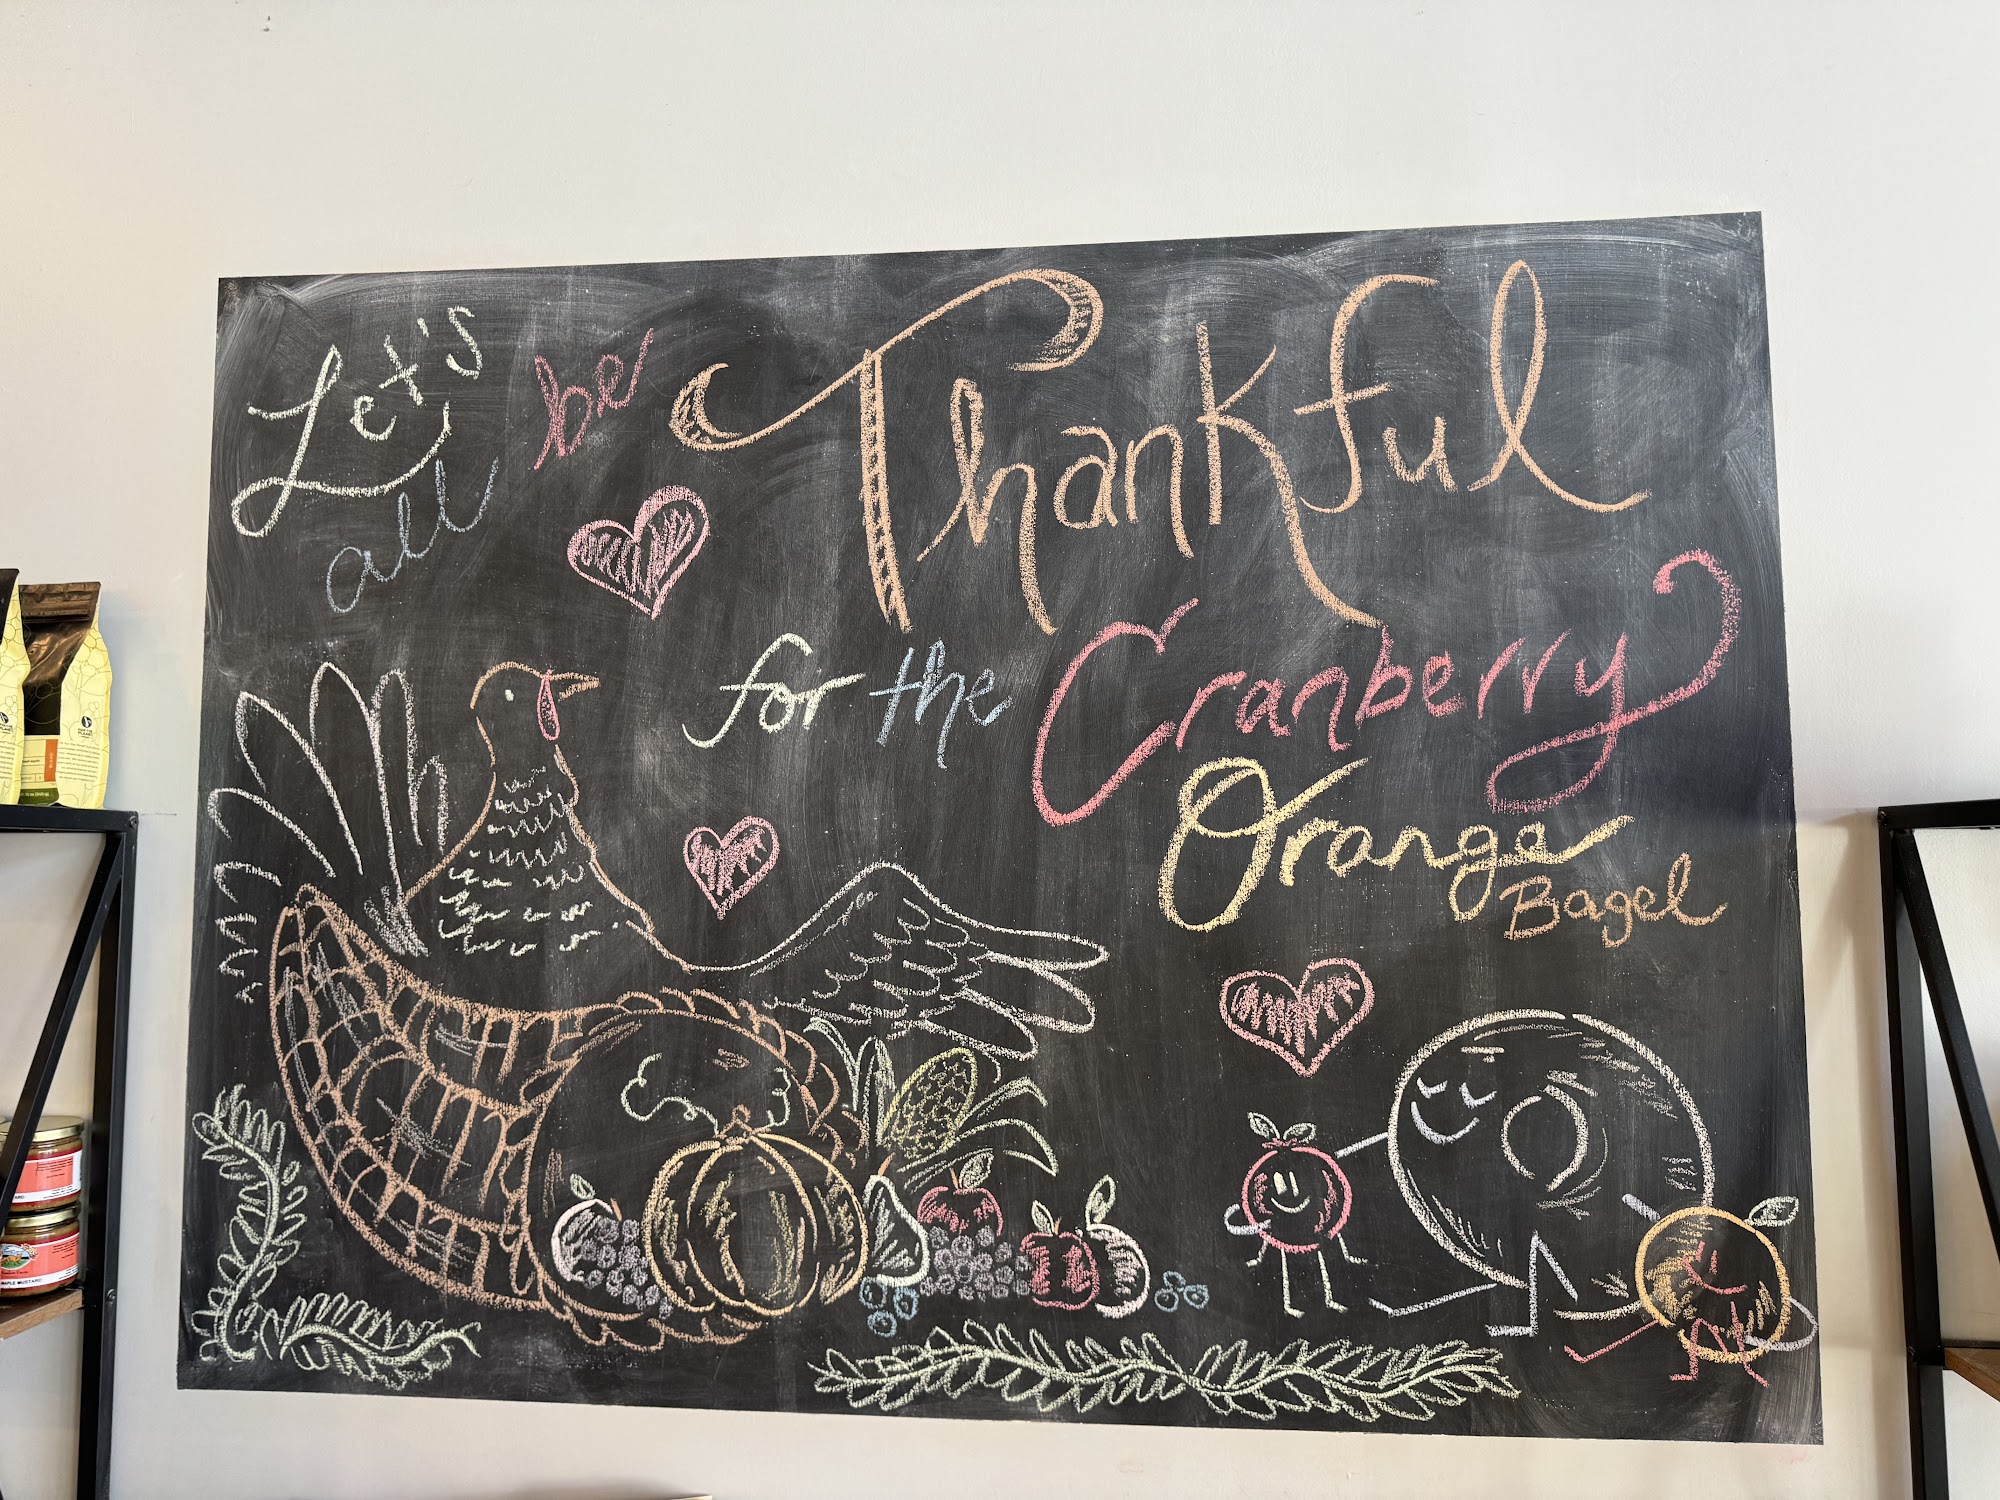 Let's be Thankful
all
for the Cranberry
Orange
Bagel
MAPLE MUSTARD